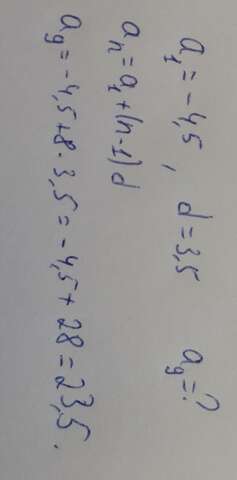 a₁ = -4,5 , d = 3,5 a₉ = ?
aₙ = a₁ + (n-1)d
a₉ = -4,5 + 8 · 3,5 = -4,5 + 28 = 23,5.